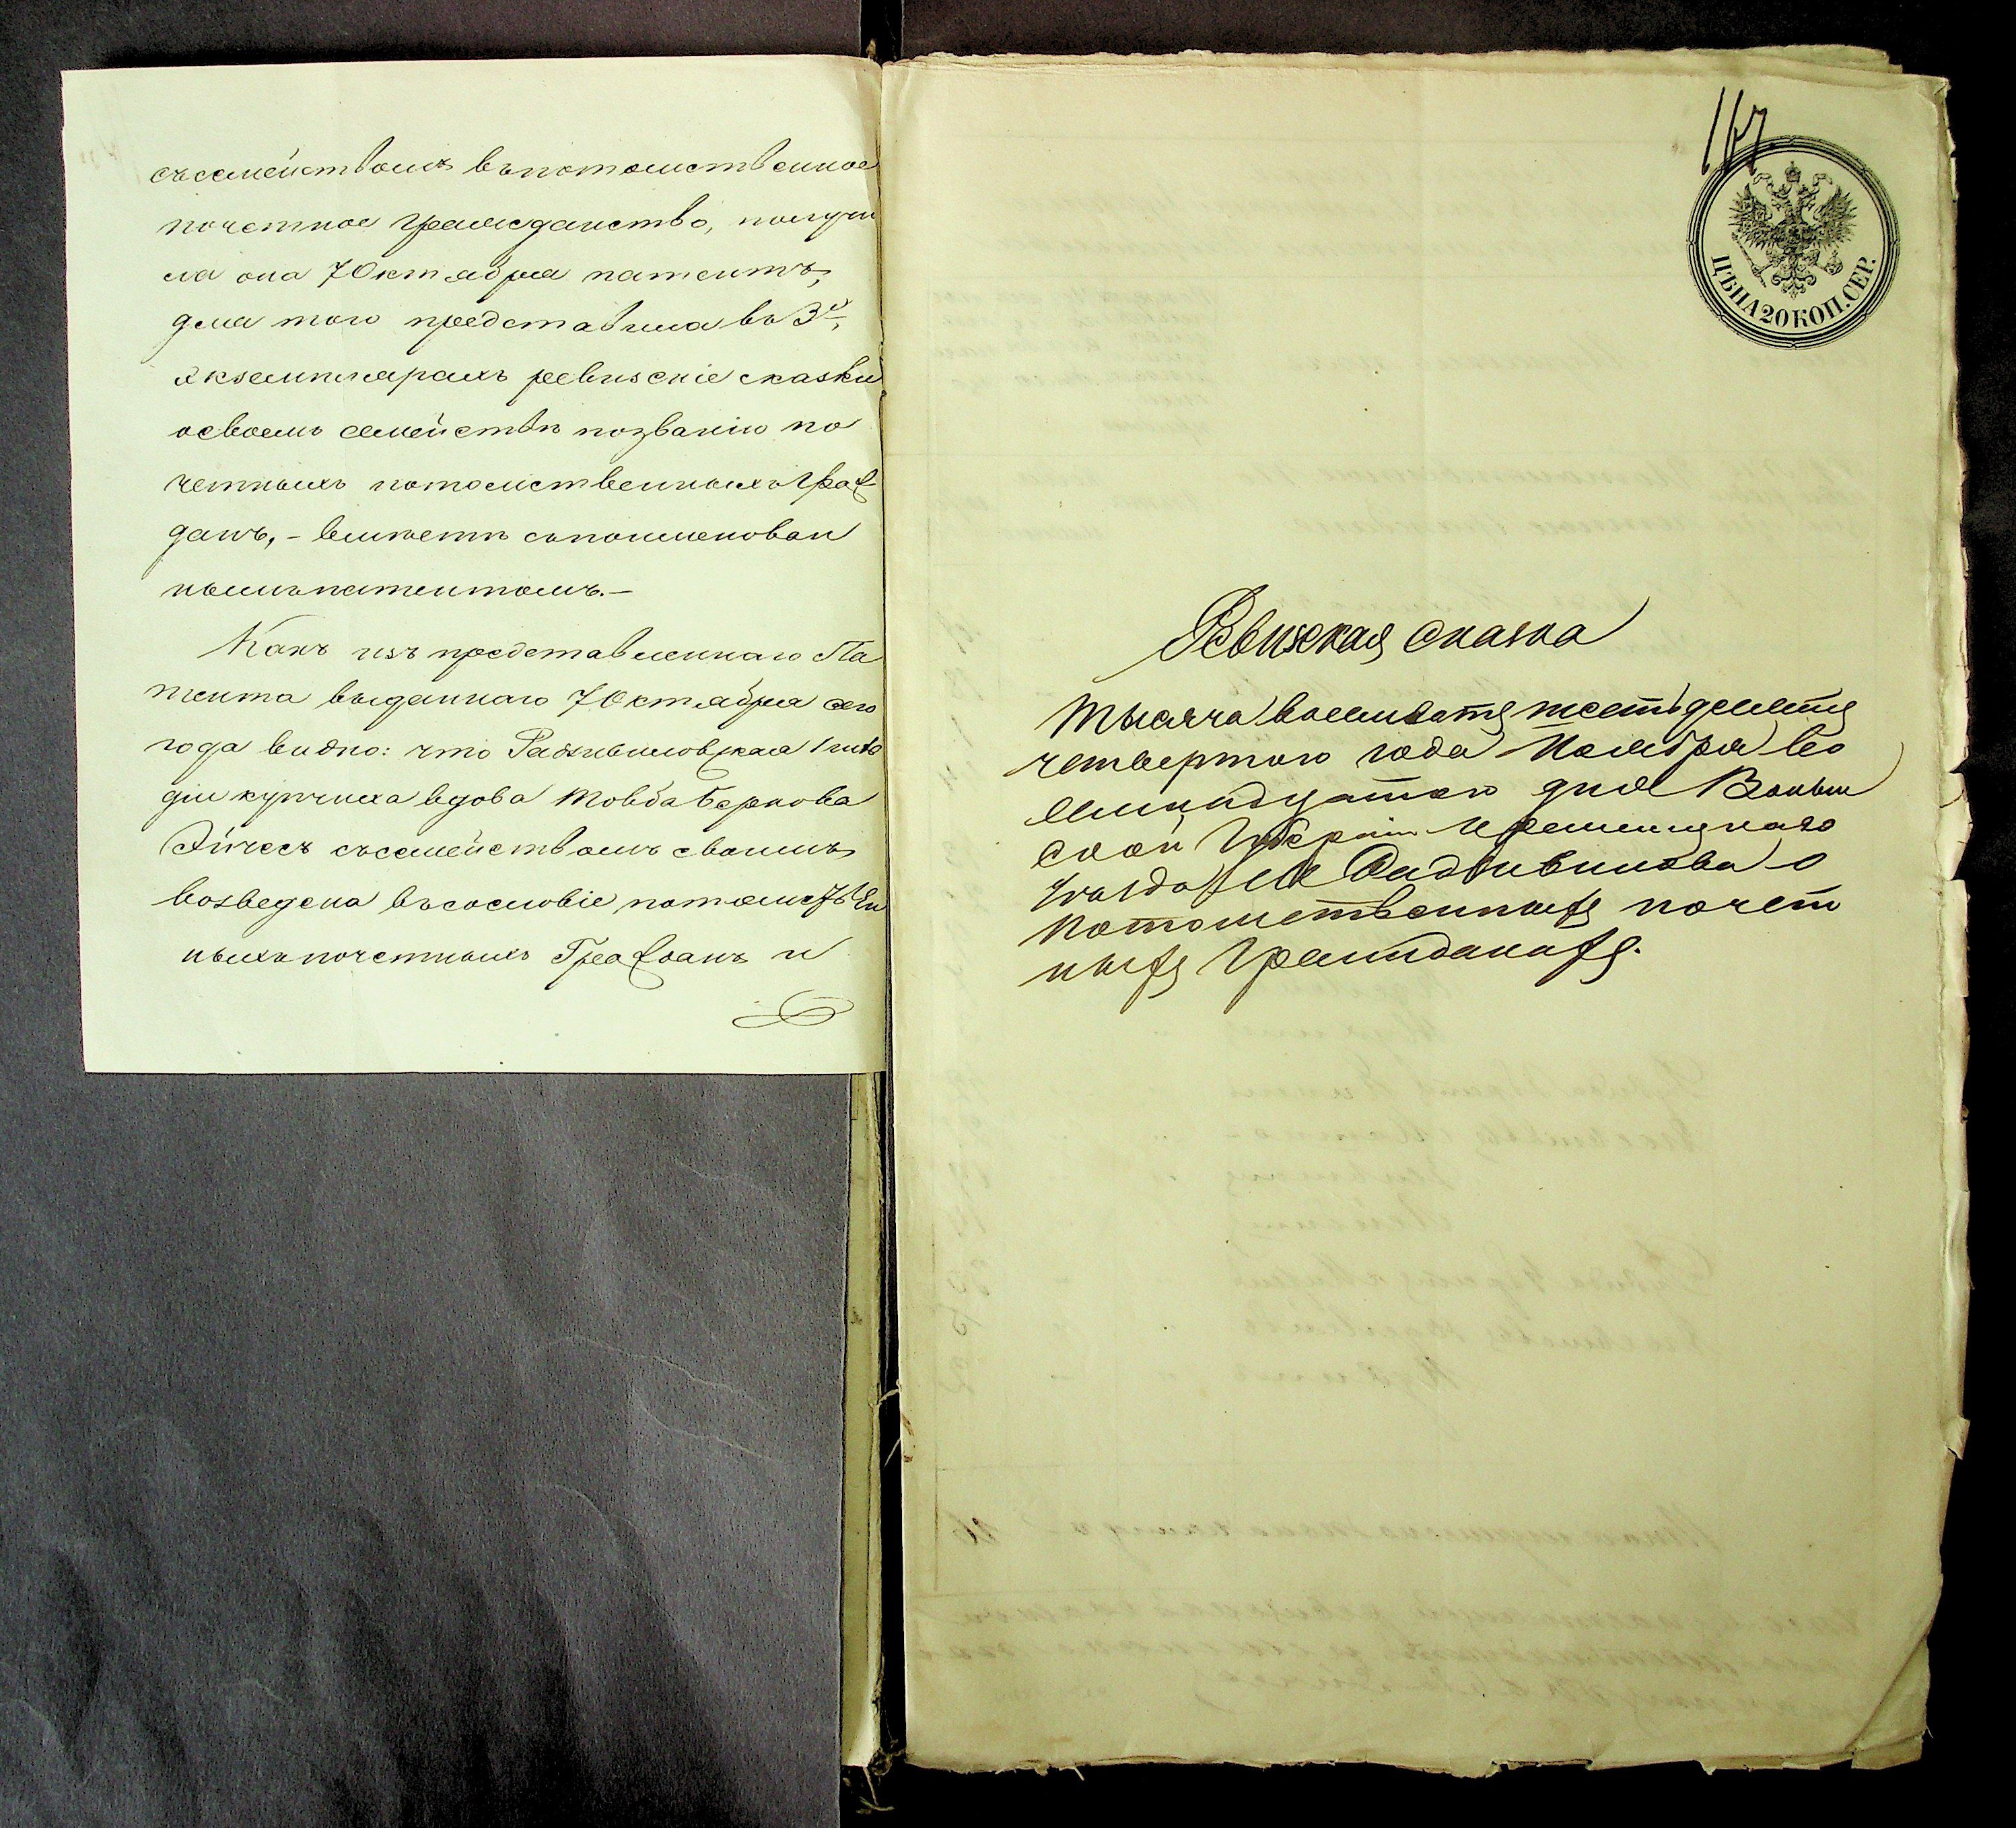 съ семействомъ въ потомственное
почетное гражданство, получи
ла она 7 Октября патентъ,
для того представила въ 3хъ
экземплярахъ ревизскіе сказки
о своемъ семействѣ по званію по
четныхъ потомственныхъ Граж
данъ, – вмѣстѣ съ поименован
нымъ патентомъ. –
Какъ изъ представленнаго Па
тента выданнаго 7 Октября сего
года видно: что Радзивиловская 1 гиль
діи купчиха вдова Товба Беркова
съ семействомъ своимъ
возведена въ сословіе потомствен
ныхъ почетныхъ Граждан и
167.
ЦѢНА 20 КОП. СЕР.
Ревизская Сказка
Тысяча восемьсотъ шестьдесятъ
четвертого года Ноября
дня Волын
ской Губерніи Кременецкаго
Уѣзда М Радзивилова о
Потомственныхъ почет
ныхъ Гражданахъ.